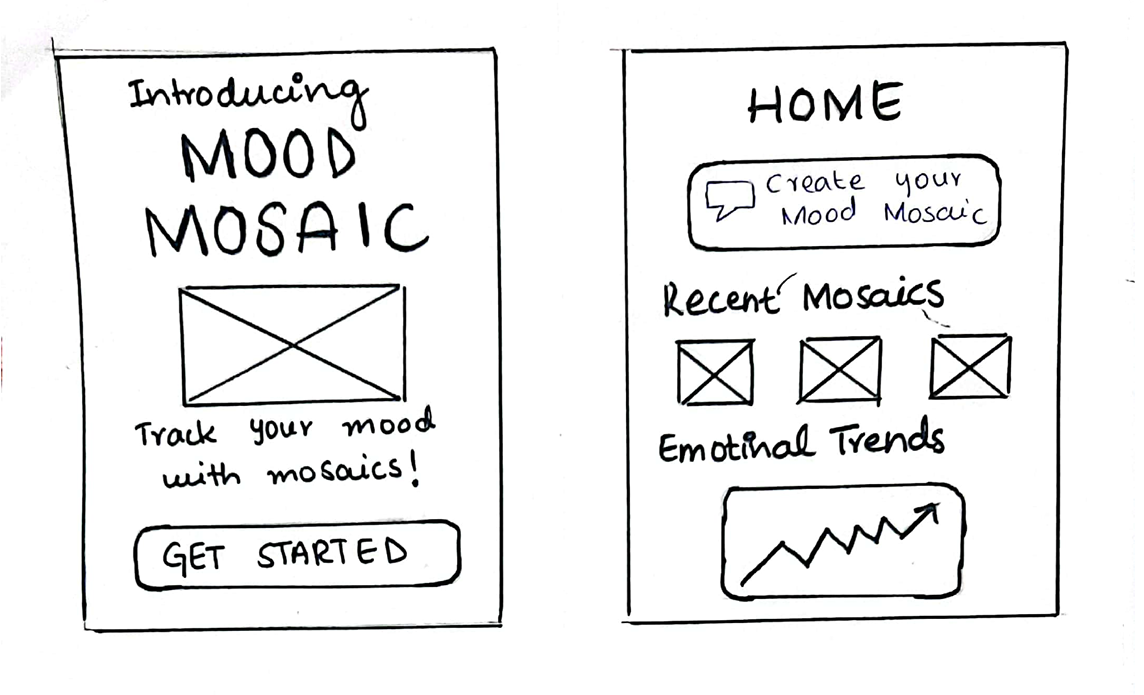 Introducing
MOOD
MOSAIC
Track your mood
with mosaics!
GET STARTED
HOME
Create your
Mood Mosaic
Recent Mosaics
Emotinal Trends